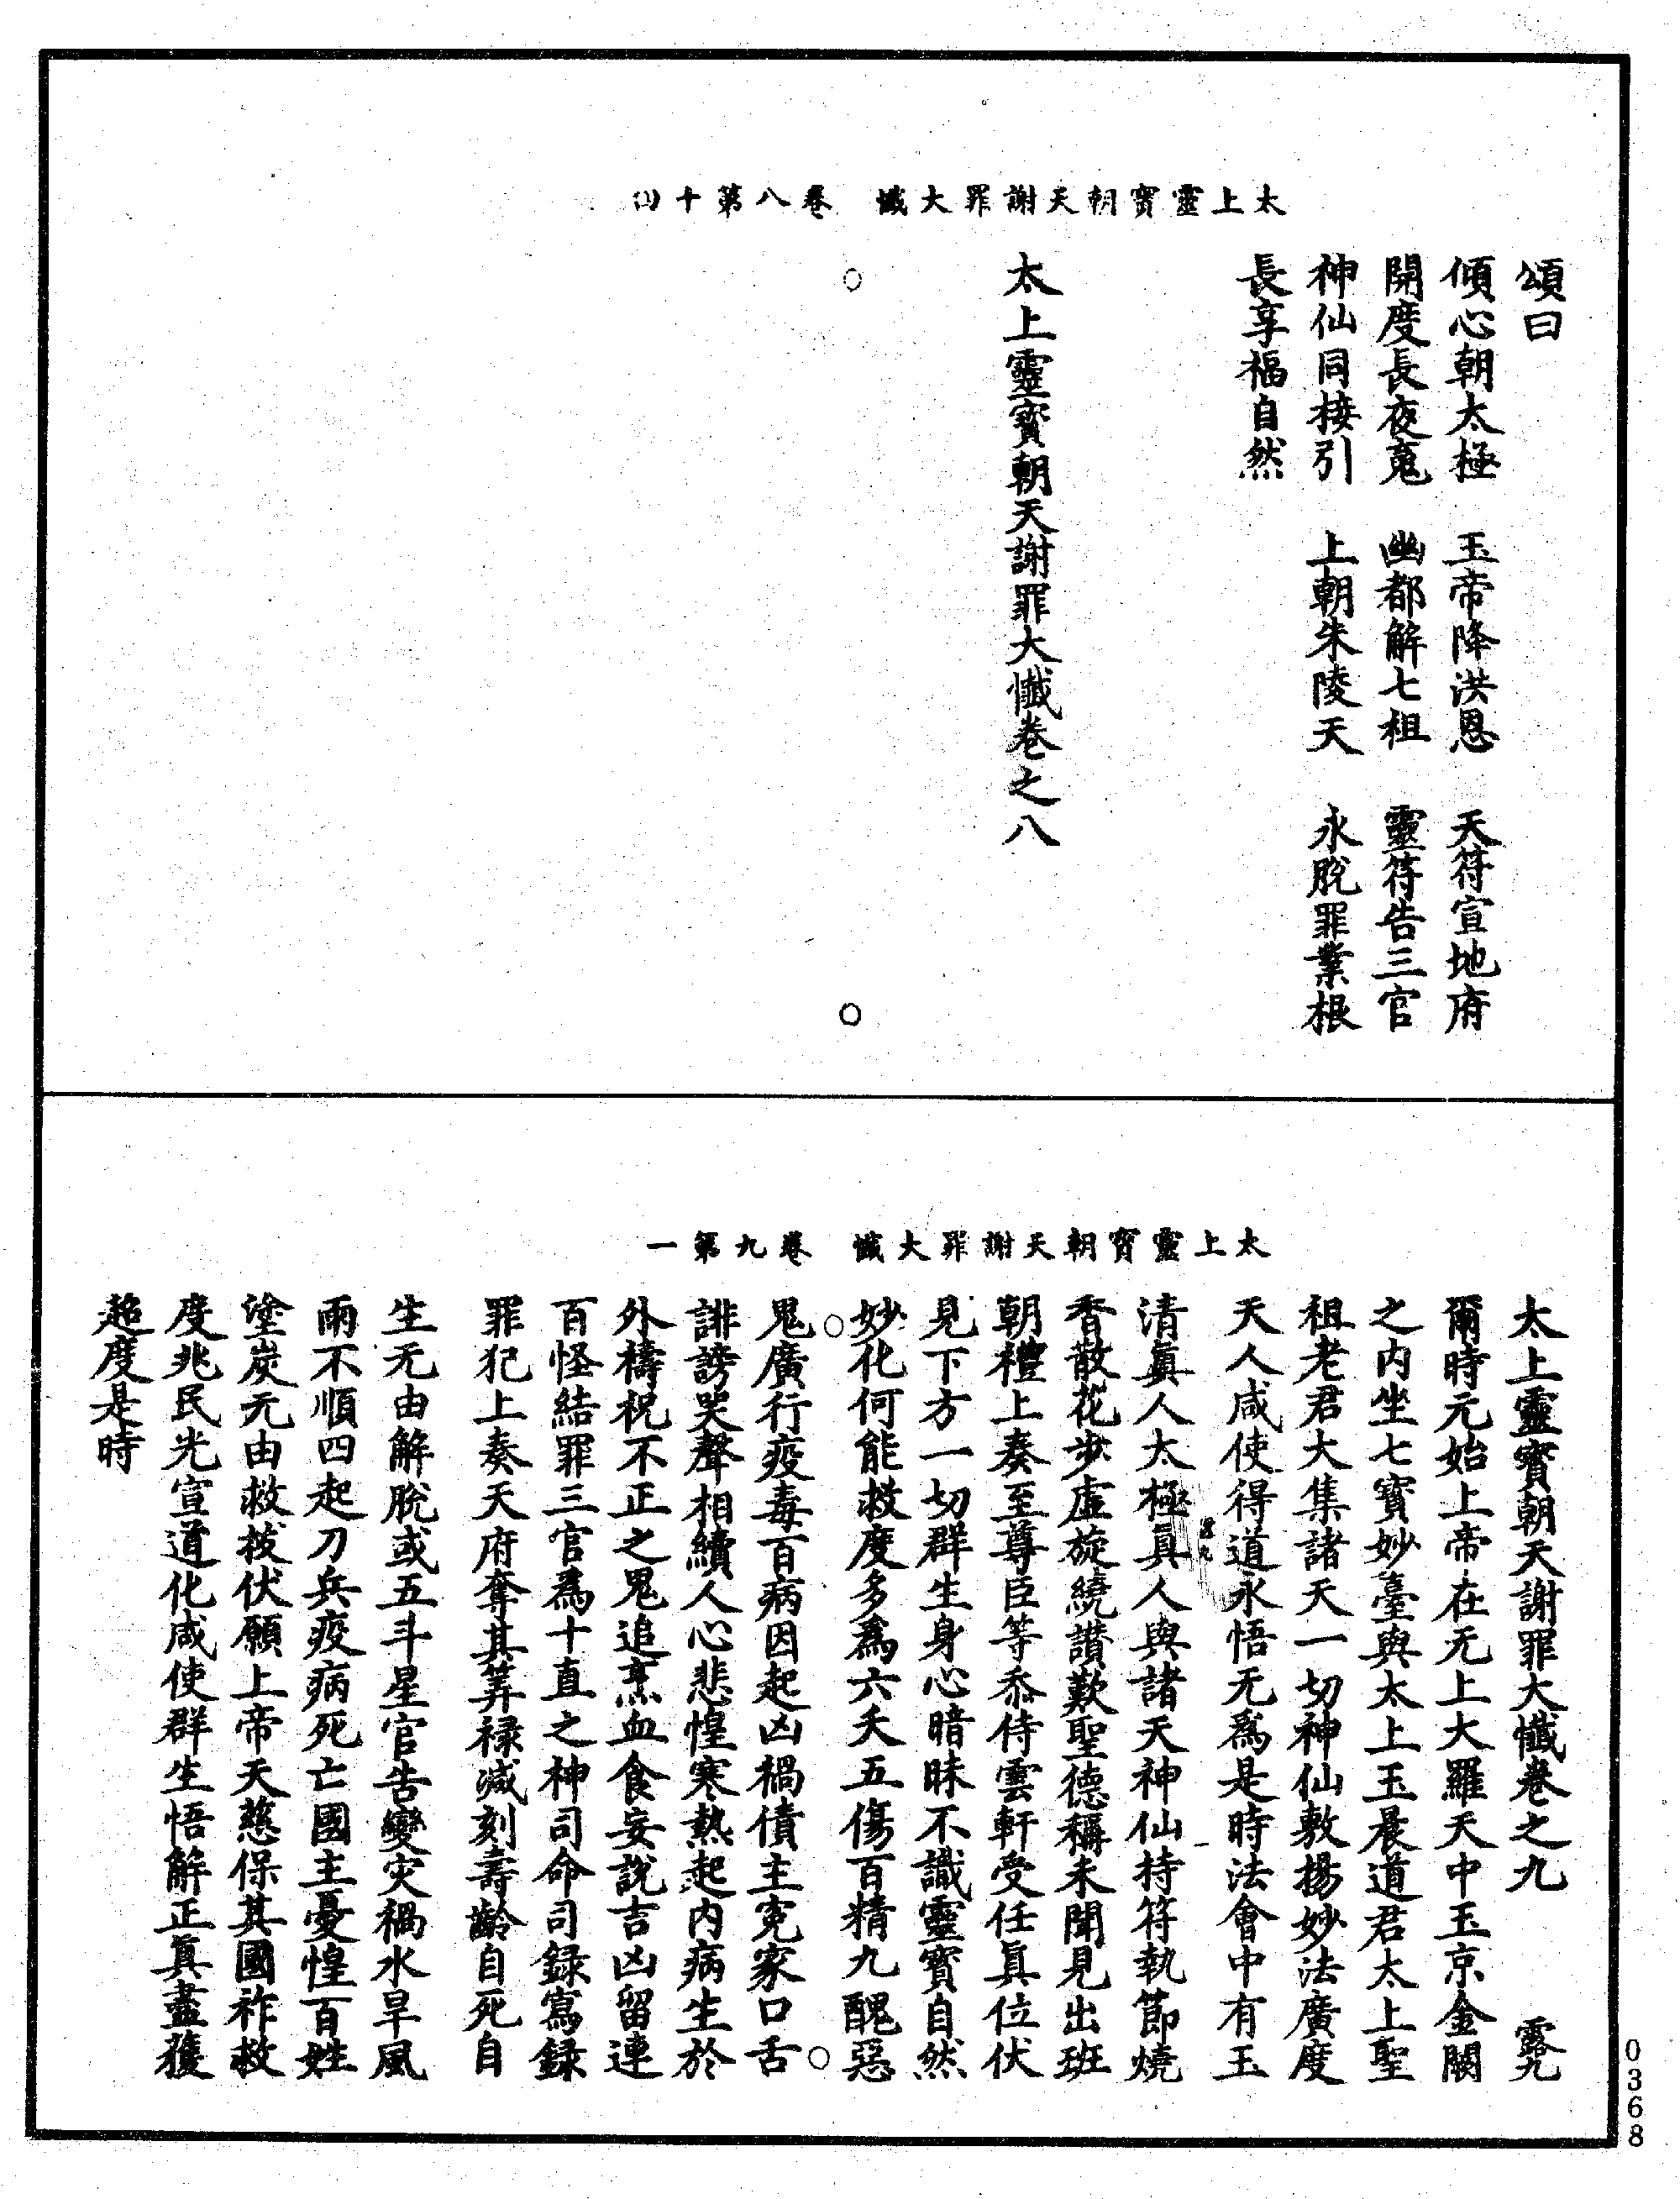 太上靈寶朝天謝罪大懺　卷八第十
頌曰
傾心朝太極　玉帝降洪恩　天符宣地府
開度長夜䰟　幽都解七祖　靈符告三官
神仙同接引　上朝朱陵天　永脫罪業根
長享福自然
太上靈寶朝天謝罪大懺卷之八
太上靈寶朝天謝罪大懺　卷九第一
太上靈寶朝天謝罪大懺卷之九
爾時元始上帝在无上大羅天中玉京金闕
之內坐七寶妙臺與太上玉晨道君太上聖
祖老君大集諸天一切神仙敷揚妙法廣度
天人咸使得道永悟无爲是時法會中有玉
清眞人太極眞人與諸天神仙持符執節燒
香散花步虛旋繞讚歎聖德稱未聞見出班
朝禮上奏至尊臣等忝侍雲軒受任眞位伏
見下方一切群生身心暗昧不識靈寶自然
妙化何能救度多爲六夭五傷百精九醜惡
鬼廣行疫毒百病因起凶禍債主寃家口舌
誹謗哭聲相續人心悲惶寒熱起內病生於
外禱祝不正之鬼追烹血食妄說吉凶留連
百怪結罪三官爲十直之神司命司録寫録
罪犯上奏天府奪其筭禄減刻壽齡自死自
生无由解脫或五斗星官告變灾禍水旱風
雨不順四起刀兵疫病死亡國主憂惶百姓
塗炭无由救拔伏願上帝天慈保其國祚救
度兆民光宣道化咸使群生悟解正眞盡獲
超度是時
0368